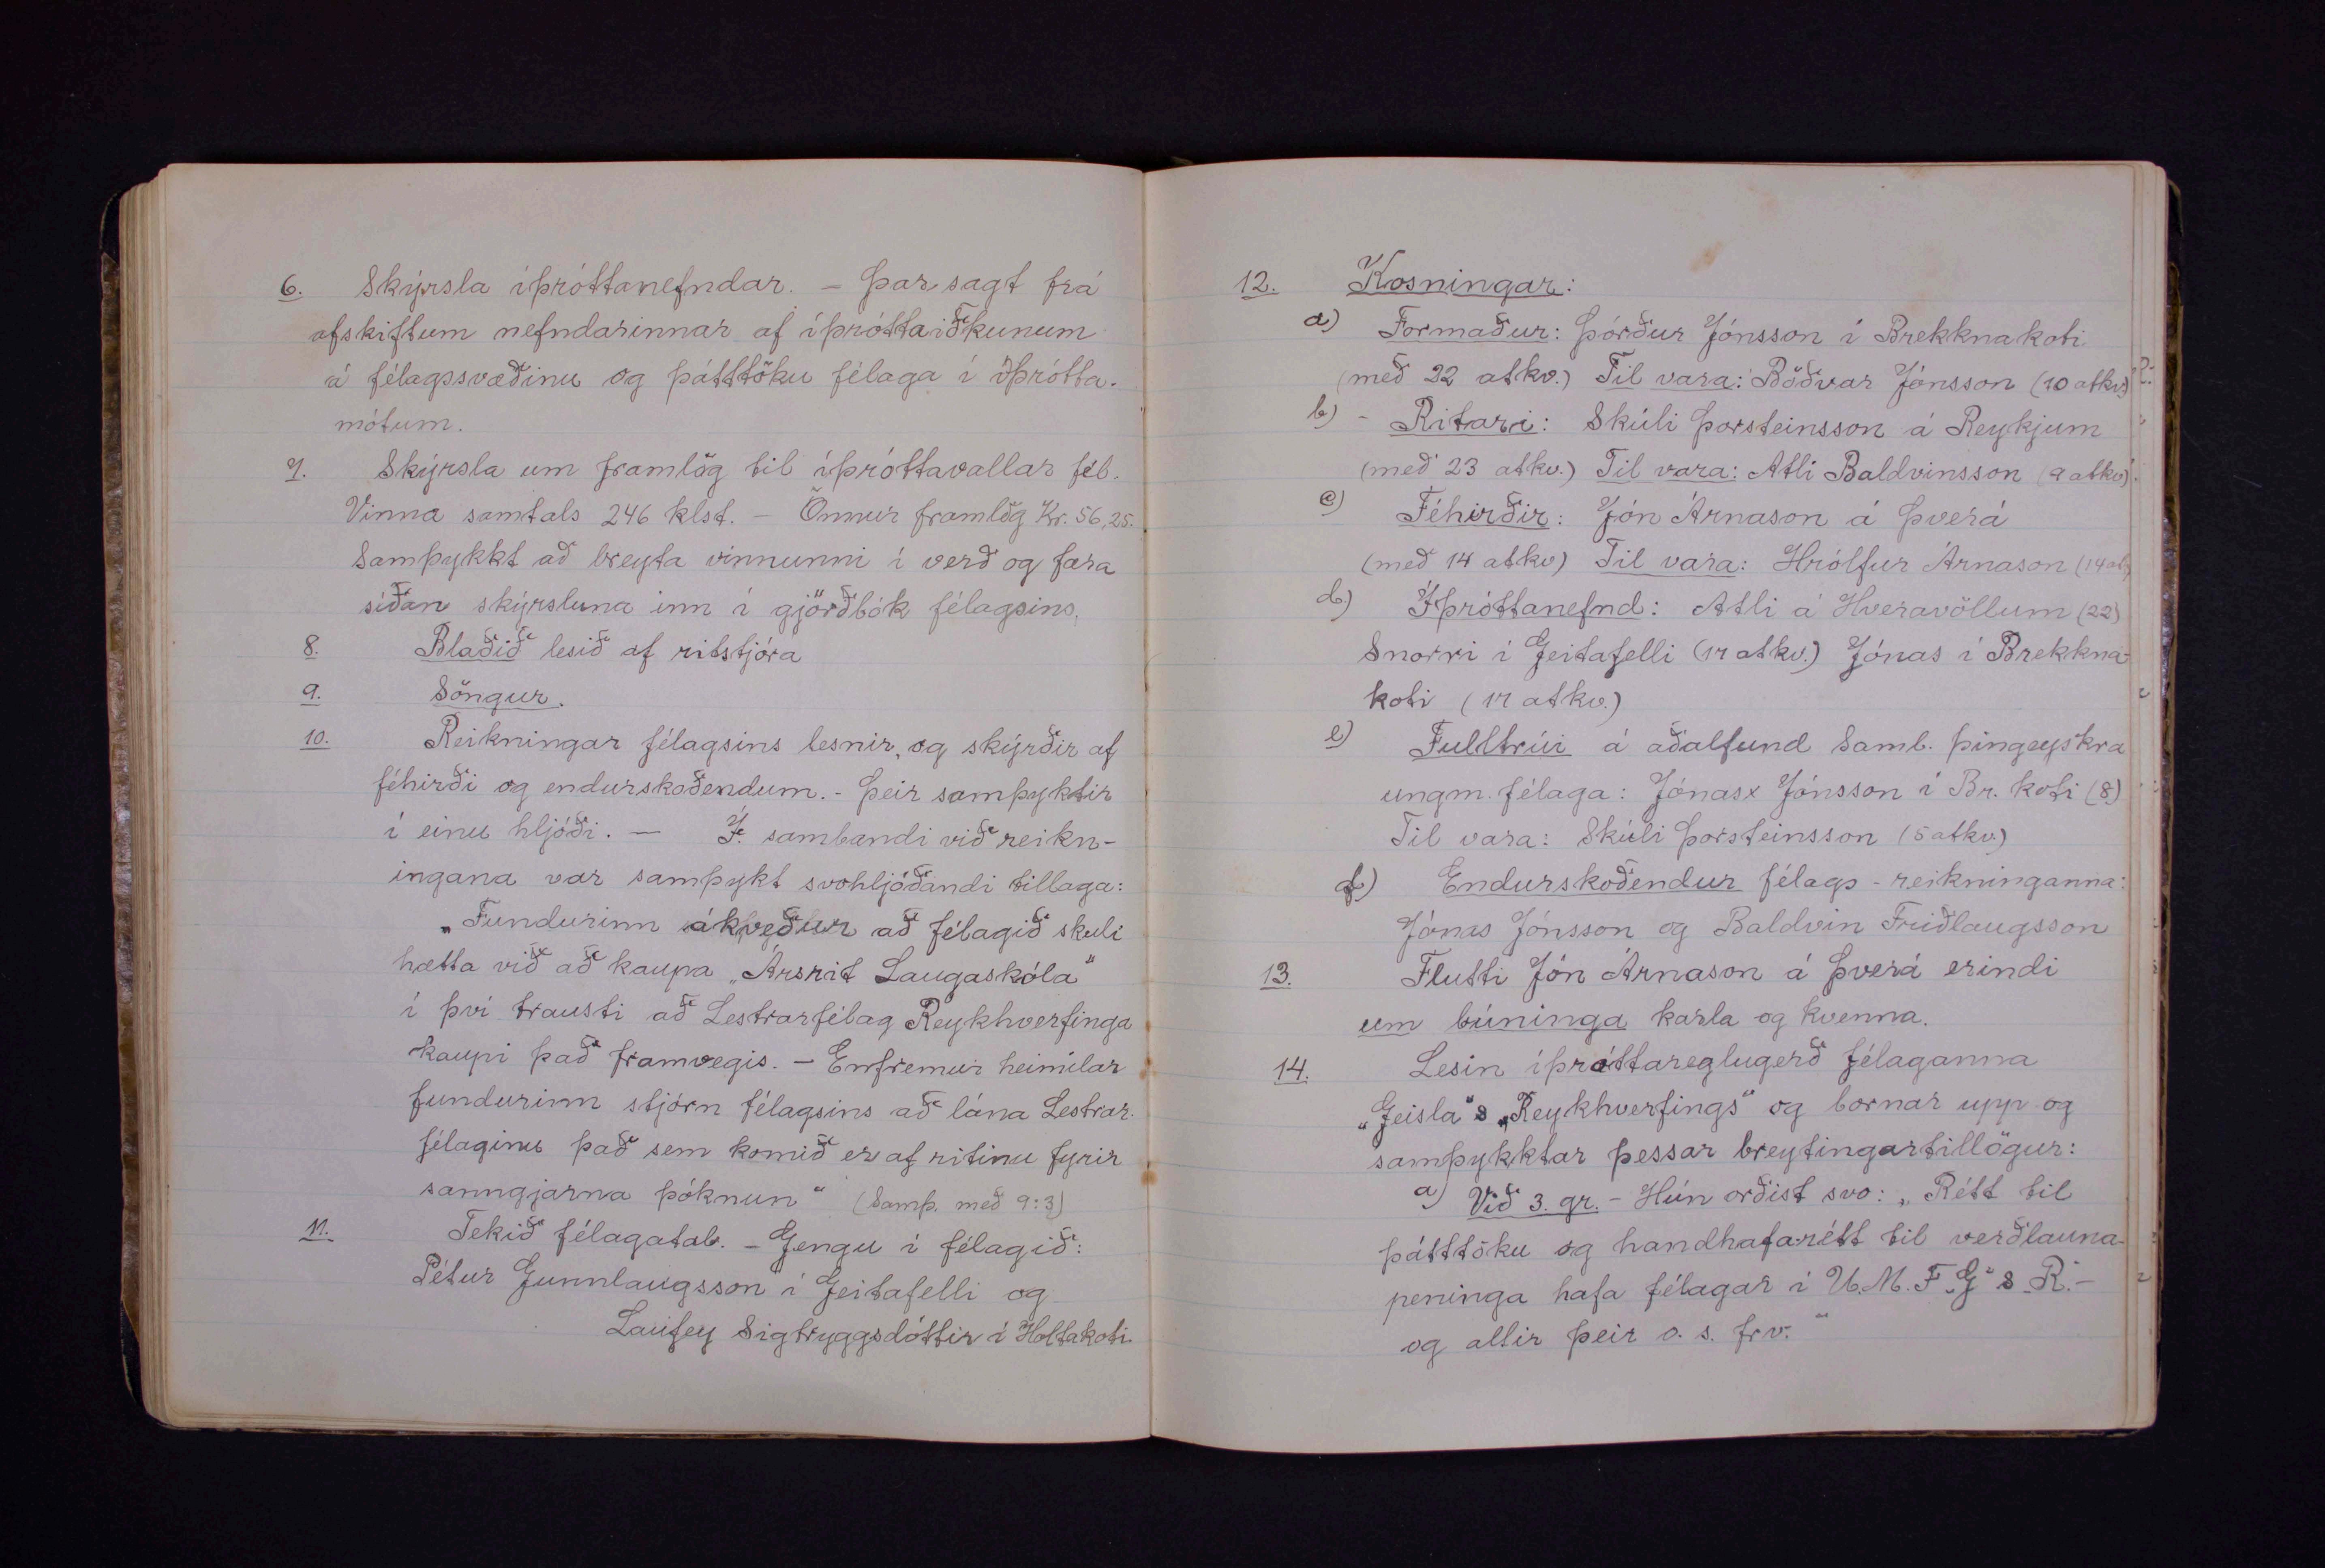 6. Skýrsla íþróttanefndar. – Þar sagt frá
afskiftum nefndarinnar af íþróttaiðkunum
á félagssvæðinu og þátttöku félaga í íþrótta-
mótum.
7. Skýrsla um framlög til íþróttavallar fél.
Vinna samtals 246 klst. – Önnur framlög Kr. 56,25.
Samþykkt að breyta vinnunni í verð og færa
síðan skýrsluna inn í gjörðbók félagsins.
8. Blaðið lesið af ritstjóra
9. Söngur.
10. Reikningar félagsins lesnir, og skýrðir af
féhirði og endurskoðendum. - Þeir samþyktir
í einu hljóði. — Í sambandi við reikn-
ingana var samþykt svohljóðandi tillaga:
„Fundurinn ákveður að félagið skuli
hætta við að kaupa „Ársrit Laugaskóla“
í því trausti að Lestrarfélag Reykhverfinga
kaupi það framvegis. – Enfremur heimilar
fundurinn stjórn félagsins að lána Lestrar-
félaginu það sem komið er af ritinu fyrir
sanngjarna þóknun“ (Samþ. með 9:3)
11. Tekið félagatal. – Gengu í félagið:
Pétur Gunnlaugsson í Geitafelli og
Laufey Sigtryggsdóttir í Holtakoti.
12. Kosningar:
a) Formaður: Þórður Jónsson í Brekknakoti
(með 22 atkv.) Til vara: Böðvar Jónsson (10 atkv)
b) - Ritari: Skúli Þorsteinsson á Reykjum
(með 23 atkv.) Til vara: Atli Baldvinsson (9 atkv).
c) Féhirðir: Jón Árnason á Þverá
(með 14 atkv) Til vara: Hrólfur Árnason (14 at.)
d) Íþróttanefnd: Atli á Hveravöllum (22)
Snorri í Geitafelli (17 atkv.) Jónas í Brekkna-
koti (17 atkv.)
e) Fulltrúi á aðalfund Samb. þingeyskra
ungm. félaga: Jónas Jónsson í Br. koti (8)
Til vara: Skúli Þorsteinsson (5 atkv.)
f) Endurskoðendur félags - reikninganna:
Jónas Jónsson og Baldvin Friðlaugsson
13. Flutti Jón Árnason á Þverá erindi
um búninga karla og kvenna.
14. Lesin íþróttareglugerð félaganna
„Geisla“ & „Reykhverfings“ og bornar upp og
samþykktar þessar breytingartillögur:
a) Við 3. gr. – Hún orðist svo: „Rétt til
þátttöku og handhafarétt til verðlauna-
peninga hafa félagar í U.M.F. „G“ & „R“ –
og allir þeir o. s. frv. “